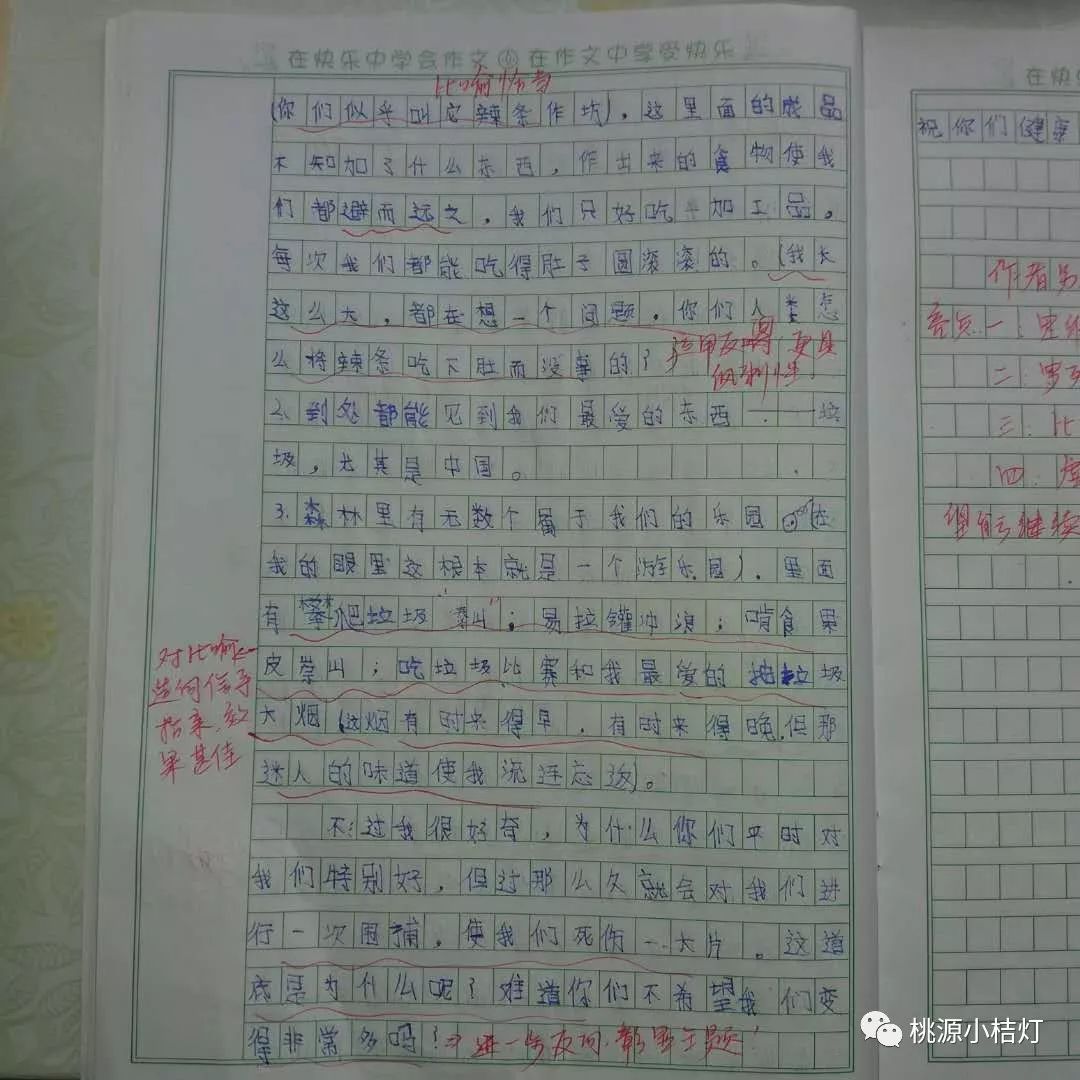 在快乐中学会作文 在作文中享受快乐
比喻恰当
(你们似乎叫它辣条作坊)，这里面的成品
不知加了什么东西，作出来的食物使我
们都避而远之，我们只好吃半加工品。
每次我们都能吃得肚子圆滚滚的。(我长
这么大，都在想一个问题，你们人类怎
么将辣条吃下肚而没事的？)
运用反问 更具
讽刺性
2、到处都能见到我们最爱的东西——垃
圾，尤其是中国。
3、森林里有无数个属于我们的乐园(在
我的眼里这根本就是一个游乐园)，里面
有攀爬垃圾“山”；易拉罐冲浪；啃食果
皮崇山；吃垃圾比赛和我最爱的抽垃圾
大烟(这烟有时来得早，有时来得晚，但那
迷人的味道使我流连忘返)。
对比喻
造句信手
拈来，效
果甚佳
不过我很好奇，为什么你们平时对
我们特别好，但过那么久就会对我们进
行一次围捕，使我们死伤一大片。这道
底是为什么呢？难道你们不希望我们变
得非常多吗！
进一步反问，彰显主题！
在快
祝你们健康
作者
一：
二：
三：比
四：
继续
桃源小桔灯